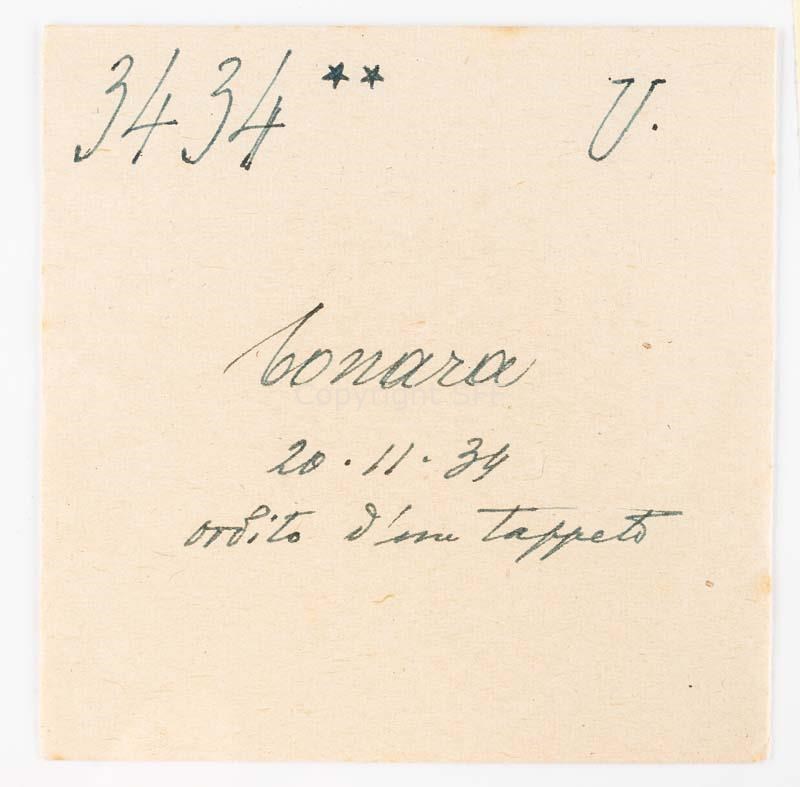 3434 ** U.
Tonara
Copyright SFF
20.11.34
ordito d'un tappeto